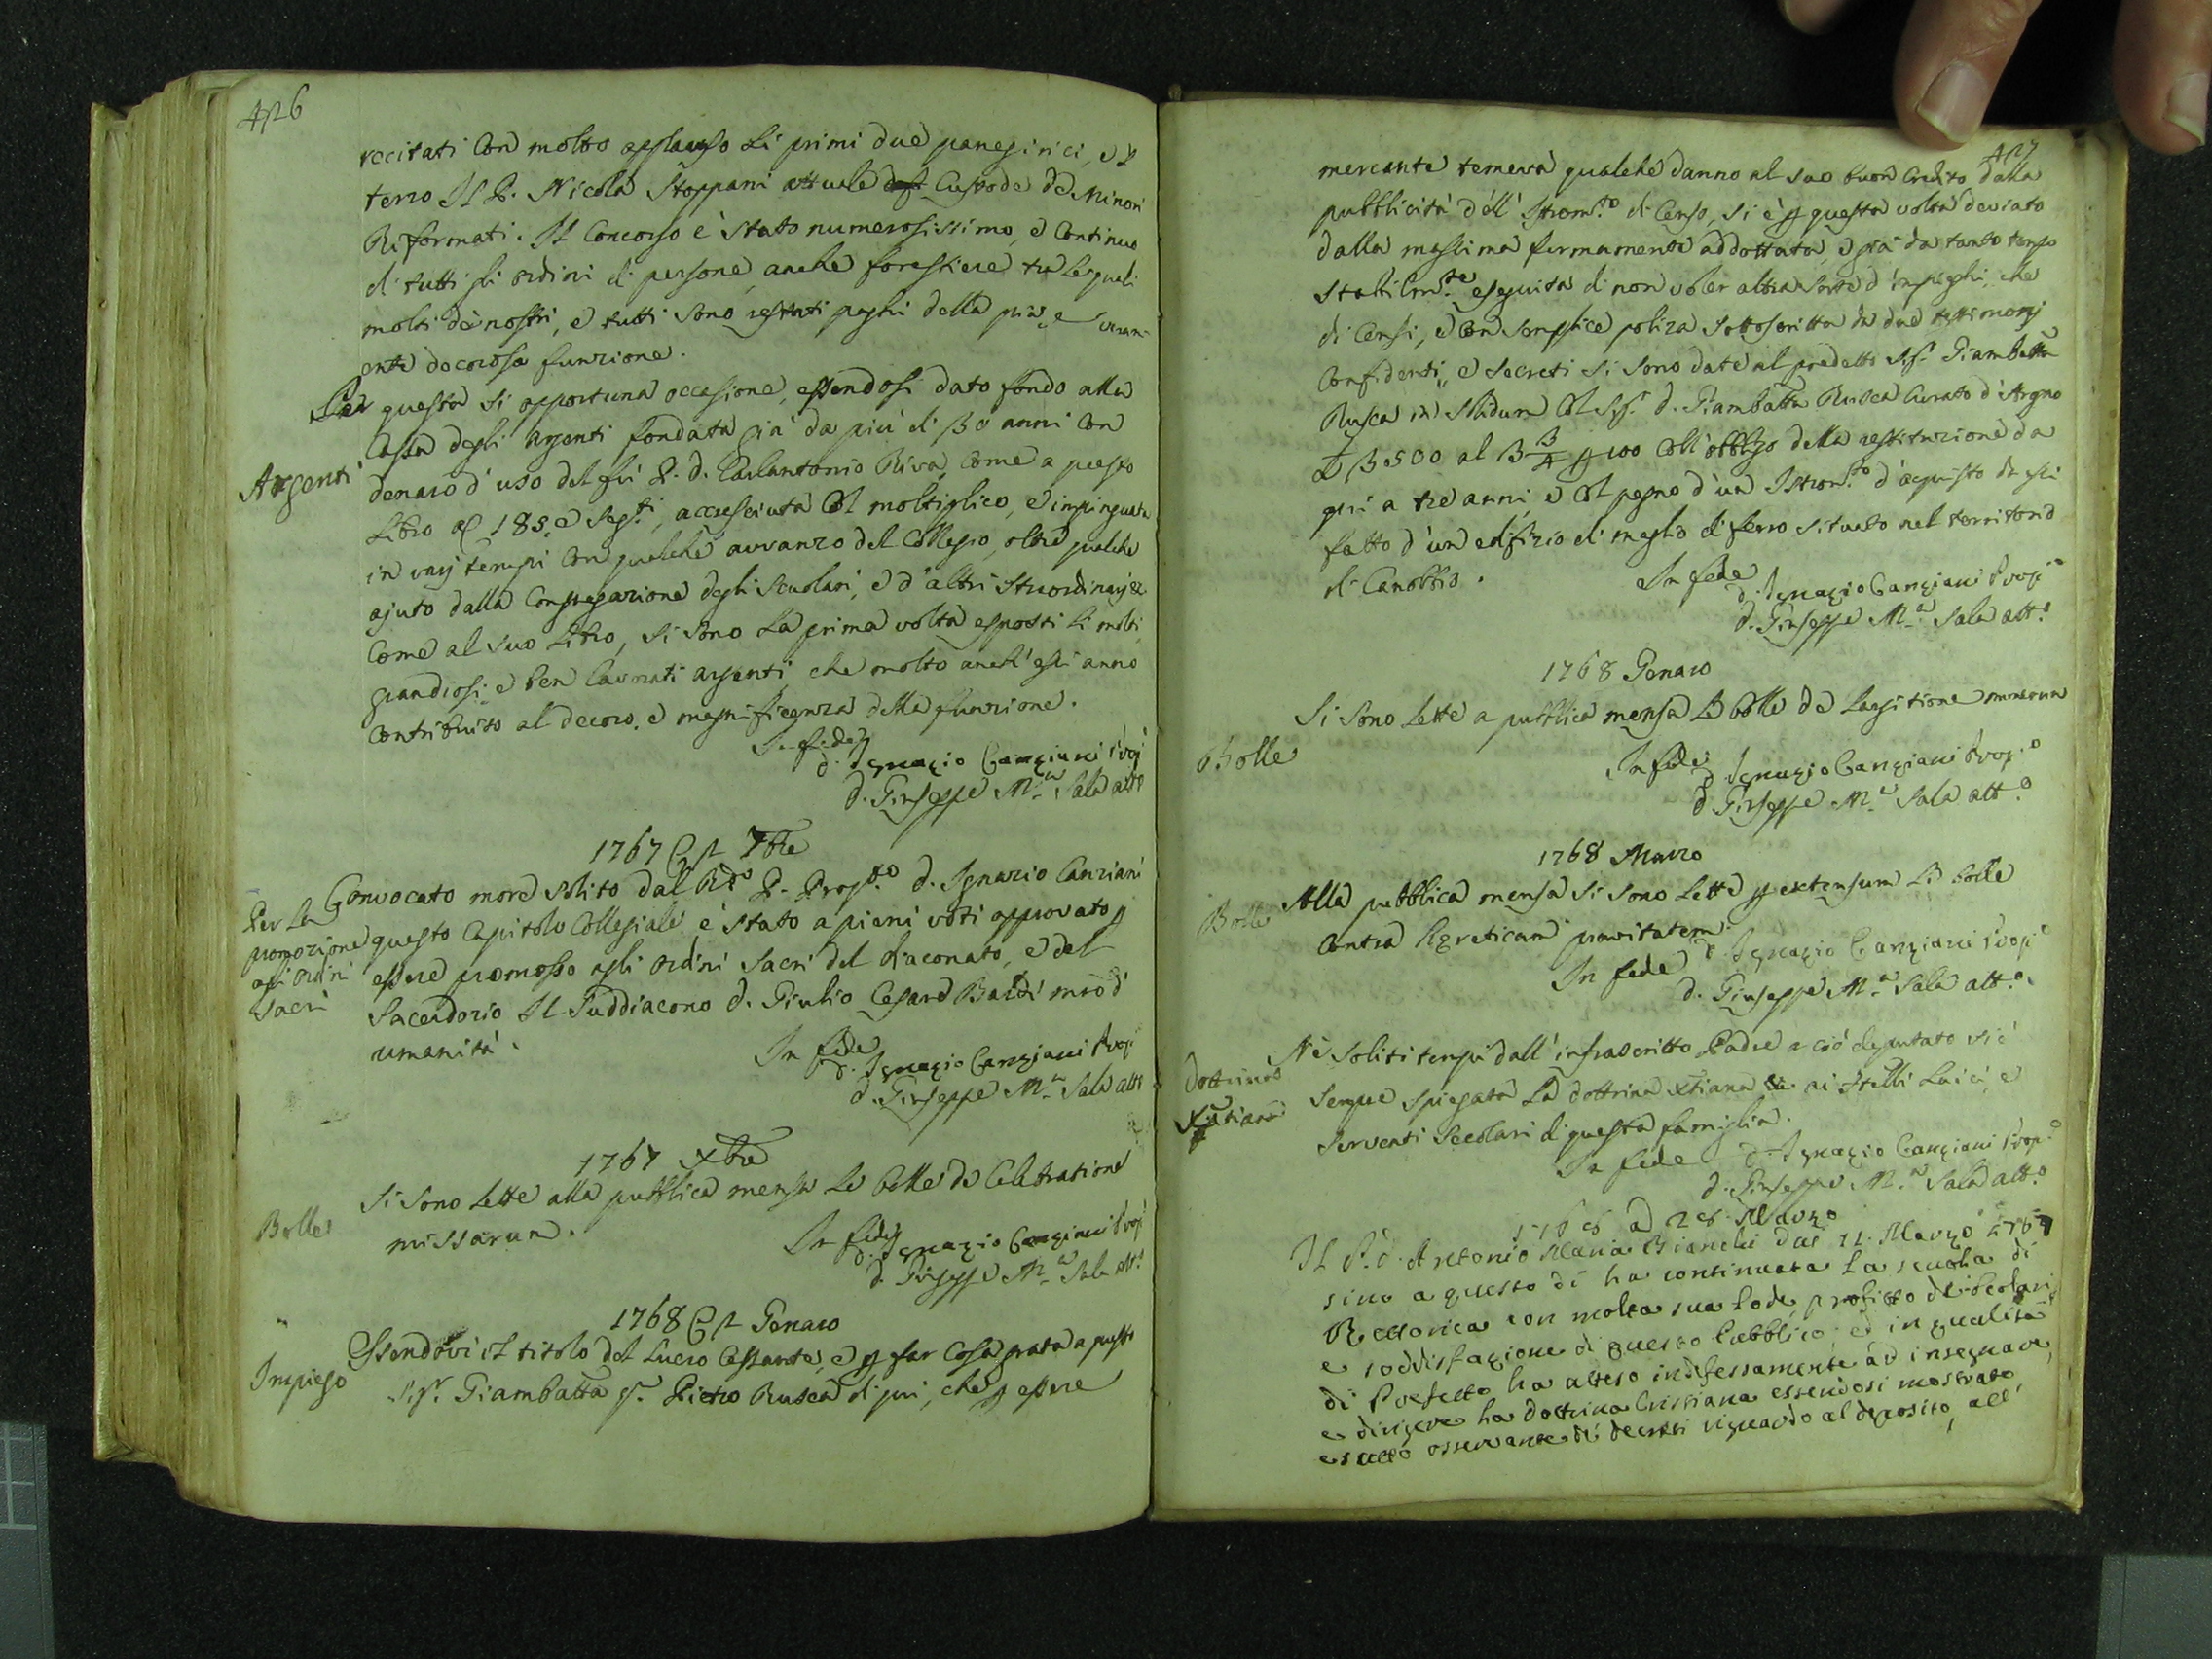 426
recitati con molto applauso li primi due panegirici, e p
terzo Il P. Nicola Stoppani attuale Custode de Minori
Riformati. Il Concorso è stato numerosissimo, e continuo
di tutti gli ordini di persone, anche forestiere tra le quali
molti dè nostri, e tutti sono restati paghi della pia, e veram-
ente decorosa funzione.
Per questa si opportuna occasione, essendosi dato fondo alla
Cassa degli argenti fondata già da più di 30 anni con
Argenti
denaro d'uso del fù P. D. Carlantonio Riva, come a questo
Libro al 185 e seg.ti, accresciuta col moltiplico, e impinguata
in varj tempi con qualche avvanzo del Collegio, oltre qualche
ajuto dalla Congregazione degli Scuolari, e d'altri straordinarj &
come al suo Libro, si sono la prima volta esposti li molti,
grandiosi, e ben lavorati argenti, che molto anch'essi anno
contribuito al decoro, e magnificenza della funzione.
In fede
d. Ignazio Canziani Prop.
d. Giuseppe M.a Sala att.
1767 7bre
Per la promozione agli ordini Sacri
Convocato more solito dal R.do P. Prop.to d. Ignazio Canziani
questo Capitolo Collegiale è stato a pieni voti approvato p
essere promosso agli ordini sacri del diaconato, e del
Sacerdozio Il Suddiacono d. Giulio Cesare Baldi mro d'
umanità.
In fede
d. Ignazio Canziani Prop.
d. Giuseppe M.a Sala att.
1767 Xbre
Si sono lette alla pubblica mensa le bolle de Celebratione
Bolle
missarum.
In fede
d. Ignazio Canziani Prop.
d. Giuseppe M.a Sala att.
1768 Genaro
Essendovi il titolo del Lucro Cessante, e p far cosa grata a questo
Impiego
Sig.r Giambatta Pietro Rusca di qui, che p essere
427
mercante temeva qualche danno al suo buon credito dalla
pubblicità dell' Istrom.to di Censo, si è p questa volta deviato
dalla massima fermamente addottata, e già da tanto tempo
stabilm.te eseguita di non voler altra sorte d'impieghi, che
di Censi, e con semplice poliza sottoscritta da due testimonj
confidenti, e secreti si sono date al predetto Sig.r Giambatta
Rusca in Solidum col Sig.r d. Giambatta Rusca Curato d'Argno
£ 3500 al 3 3/4 p 100 coll'obbligo della restituzione da
qui a tre anni, e col pegno d'un Istrom.to d'acquisto da essi
fatto d'un edifizio di maglio di ferro situato nel territorio
di Canobbio.
In fede
d. Ignazio Canziani Prop.o
d. Giuseppe M.a Sala att.o
1768 Genaro
Si sono lette a pubblica mensa le bolle de Largitione munerum
Bolle
In fede
d. Ignazio Canziani Prop.o
d. Giuseppe M.a Sala att.o
1768 Marzo
Bolle
Alla pubblica mensa si sono lette p extensum le bolle
contra hereticam pravitatem.
In fede
d. Ignazio Canziani Prop.o
d. Giuseppe M.a Sala att.o
Dottrina Xstiana
Ne soliti tempi dall'infrascritto Padre a ciò deputato si è
sempre spiegata la dottrina Xtiana ai Ftelli Laici, e
serventi secolari di questa famiglia.
In fede
d. Ignazio Canziani Prop.o
d. Giuseppe M.a Sala att.o
1768 a 28 Marzo
Il P. d. Antonio Maria Bianchi dal 11. Marzo 1767
sino a questo di ha continuata la scuola di
Rettorica con molta sua lode, profitto dè scolari,
e soddisfazione di questo Pubblico; ed in qualità
di Prefetto ha atteso indefessamente ad insegnare,
e dirigere la dottrina Cristiana essendosi mostrato
esatto osservante dè decreti riguardo al deposito, all'